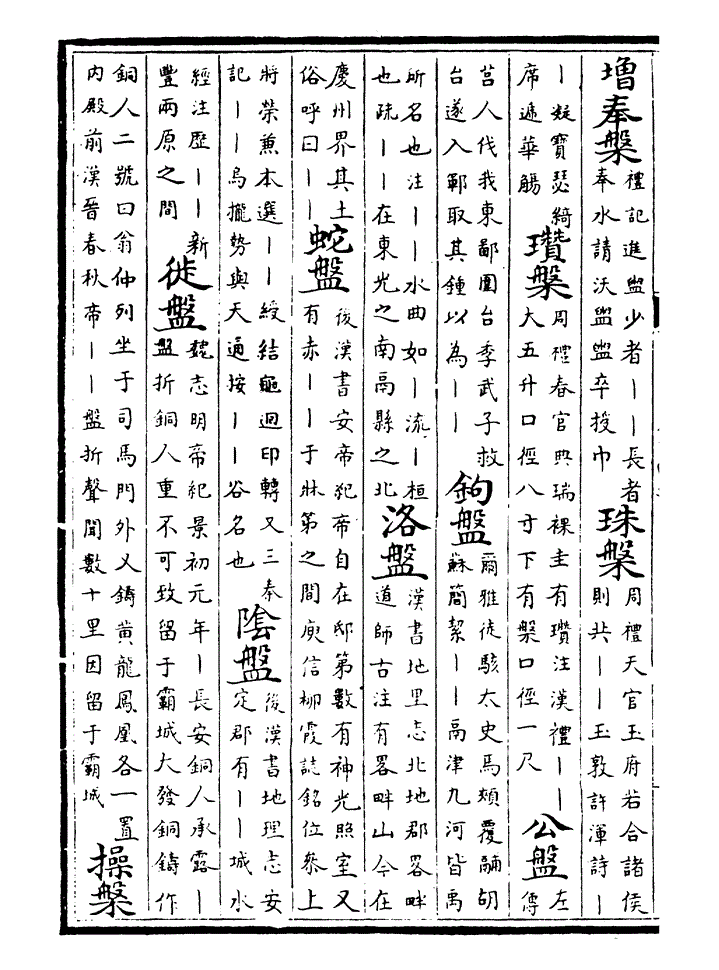 增奉槃
禮記進盥少者丨丨長者
奉水請沃盥盥卒授巾
珠槃
周禮天官玉府若合諸侯
則共丨丨玉敦許渾詩丨
丨凝寶瑟綺
席遞華觴
瓚槃
周禮春官典瑞祼圭有瓚注漢禮丨丨
大五升口徑八寸下有槃口徑一尺
公盤
左
傳
莒人伐我東鄙圍台季武子救
台遂入鄆取其鍾以為丨丨
鉤盤
爾雅徒駭太史馬頰覆鬴胡
蘇簡絜丨丨鬲津九河皆禹
所名也注丨丨水曲如丨流丨桓
也疏丨丨在東光之南鬲縣之北
洛盤
漢書地里志北地郡畧畔
道師古注有畧畔山今在
慶州界其土
俗呼曰丨丨
蛇盤
後漢書安帝紀帝自在邸第數有神光照室又
有赤丨丨于牀第之間庾信柳霞誌銘位參上
將榮兼本選丨丨綬結龜迴印轉又三秦
記丨丨烏攏勢與天通按丨丨谷名也
陰盤
後漢書地理志安
定郡有丨丨城水
經注歴丨丨新
豐兩原之間
徙盤
魏志明帝紀景初元年丨長安銅人承露丨
盤折銅人重不可致留于霸城大發銅鑄作
銅人二號曰翁仲列坐于司馬門外又鑄黄龍鳳凰各一置
內殿前漢晉春秋帝丨丨盤折聲聞數十里因留于霸城
操槃